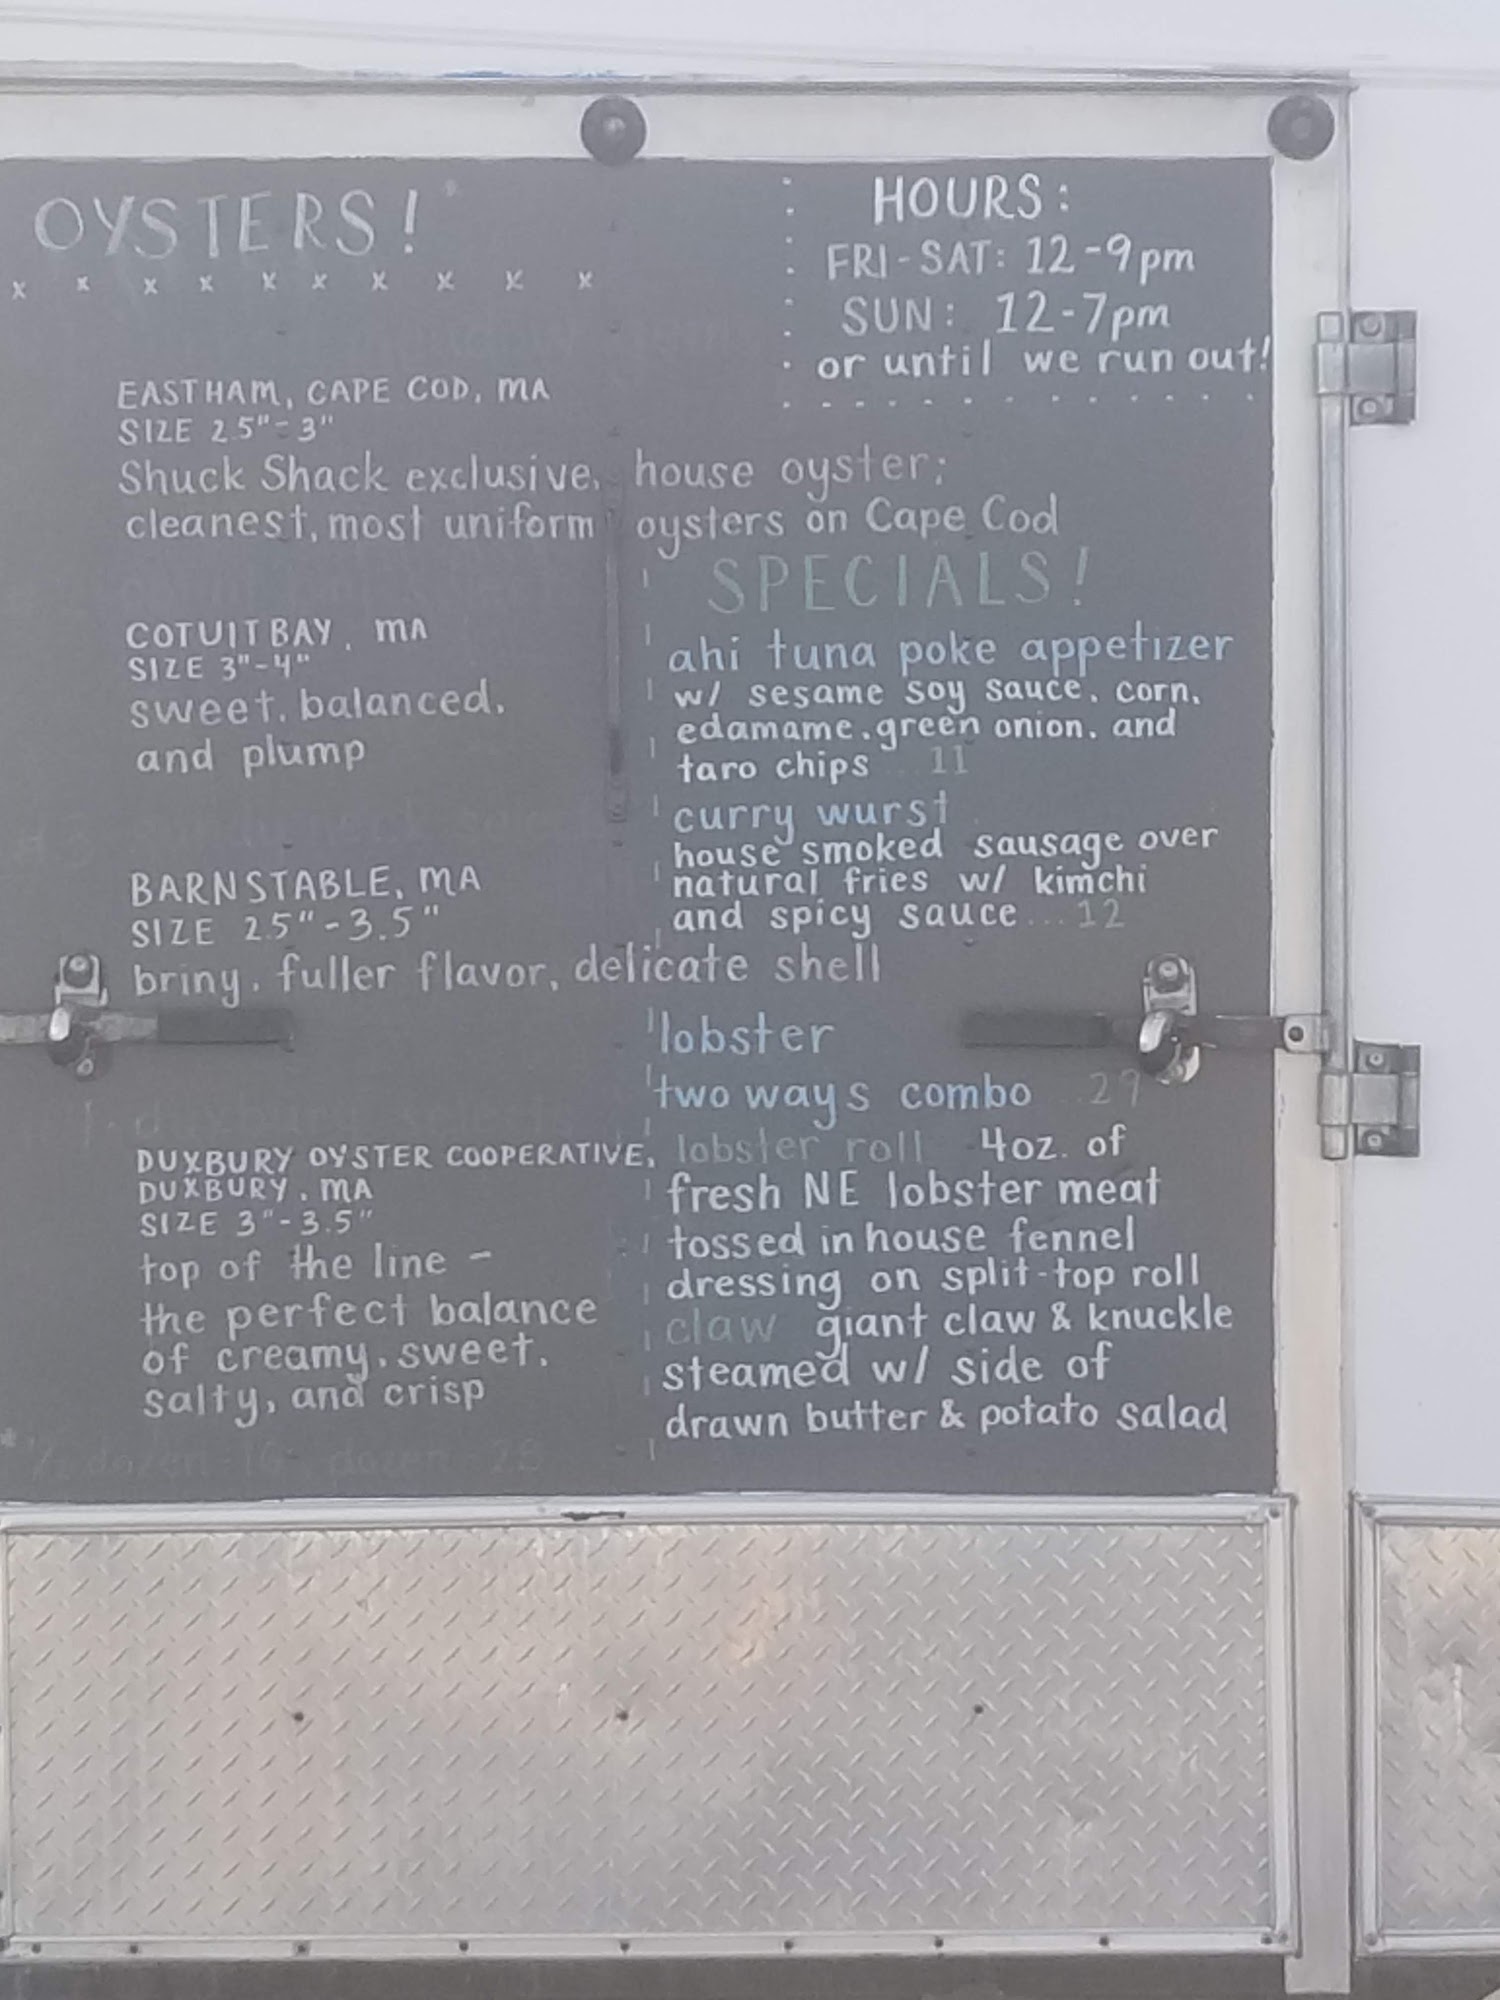 OYSTERS!
x x x x x x x x x x
HOURS:
FRI-SAT: 12-9pm
SUN: 12-7pm
or until we run out!
EASTHAM, CAPE COD, MA
SIZE 2.5"-3"
Shuck Shack exclusive, house oyster;
cleanest, most uniform oysters on Cape Cod
COTUIT BAY, MA
SIZE 3"-4"
sweet, balanced,
and plump
BARNSTABLE, MA
SIZE 2.5"-3.5"
briny, fuller flavor, delicate shell
DUXBURY OYSTER COOPERATIVE,
DUXBURY, MA
SIZE 3"-3.5"
top of the line -
the perfect balance
of creamy, sweet,
salty, and crisp
1/2 dozen dozen 28
SPECIALS!
ahi tuna poke appetizer
w/ sesame soy sauce, corn,
edamame, green onion, and
taro chips ...11
curry wurst
house smoked sausage over
natural fries w/ kimchi
and spicy sauce ...12
lobster
two ways combo ..29
lobster roll 4oz. of
fresh NE lobster meat
tossed in house fennel
dressing on split-top roll
claw giant claw & knuckle
steamed w/ side of
drawn butter & potato salad